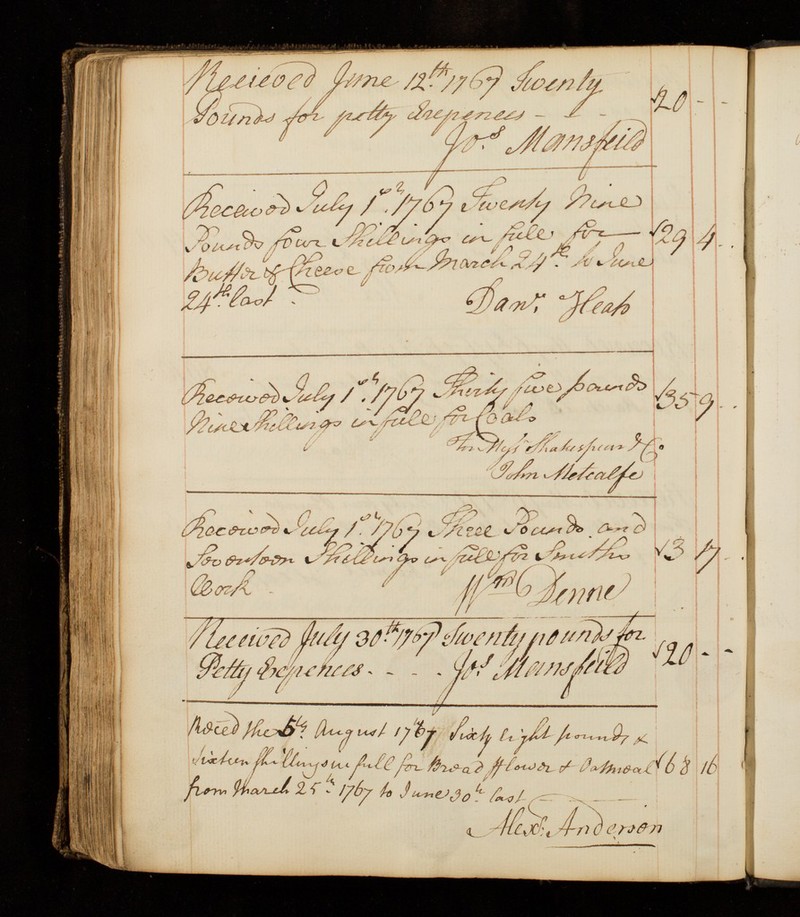 Receieved June 12th 1767 Twenty
Pounds for petty Expences - - - 20 - -
Jos. Mansfeild
Received July 1st 1767 Twenty Nine
Pounds four Shillings in full for 29 4 . .
Butter & Cheese from March 24th to June
24th last
Danl. Heap
Received July 1st 1767 Thirty five pounds 35 9 . .
Nine Shillings in full for Coals
Shakespear & Co
John Metcalfe
Received July 1st 1767 Three Pounds and
Seventeen Shillings in full for Smiths 3 17 . .
Work
Wm Denne
Received July 30th 1767 Twenty pounds for
Petty Expences - - - - Jos. Mansfeild 20 - -
Receed the 5th August 1767 Sixty Eight pounds &
Sixteen Shillings in full for Bread Flower & Oatmeal 68 16
from March 25th 1767 to June 30th last
Alexr. Anderson